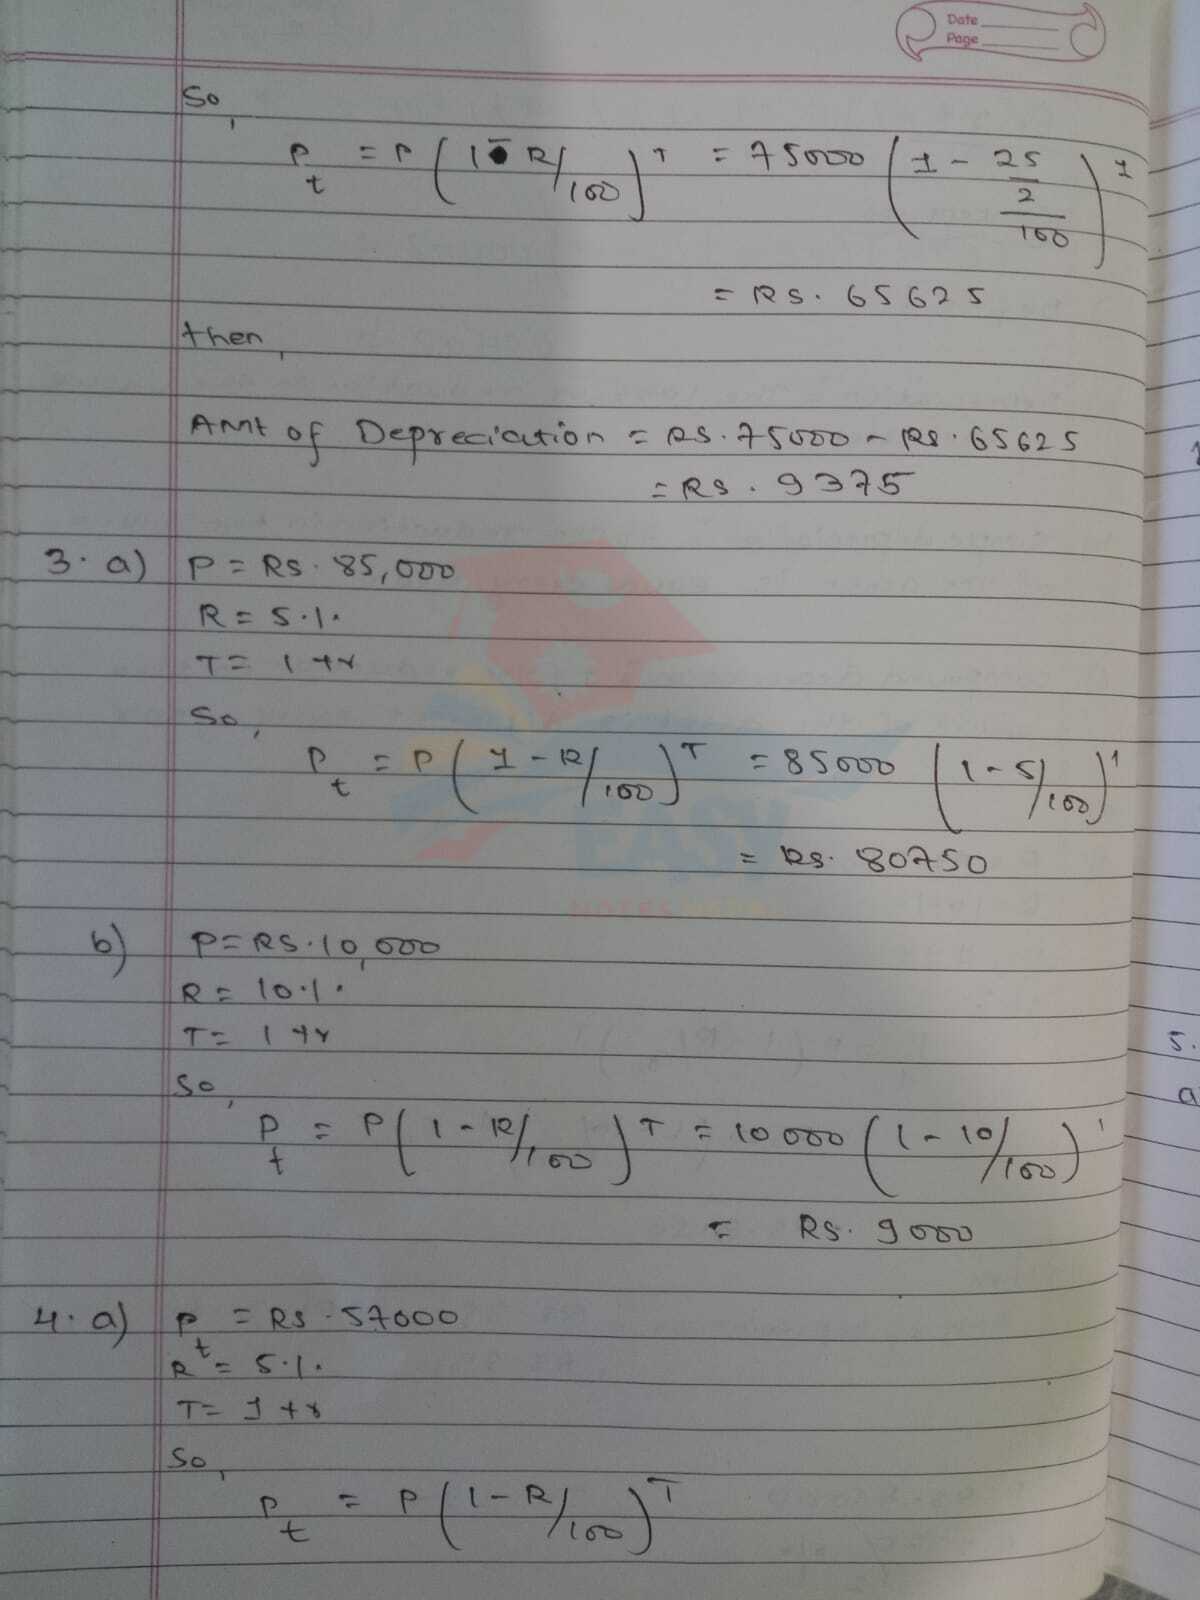 Date
Page
So,
Pt = P (1 - R/100)^T = 75000 (1 - 25/2/100)^1
= Rs. 65625
then,
Amt of Depreciation = Rs. 75000 - Rs. 65625
= Rs. 9375
3. a) P = Rs. 85,000
R = 5%
T = 1 yr
So,
Pt = P (1 - R/100)^T = 85000 (1 - 5/100)^1
= Rs. 80750
EASY
NOTES
b) P = Rs. 10,000
R = 10%
T = 1 yr
So,
Pt = P (1 - R/100)^T = 10000 (1 - 10/100)^1
= Rs. 9000
4. a) Pt = Rs. 57000
R = 5%
T = 1 yr
So,
Pt = P (1 - R/100)^T
5.
a